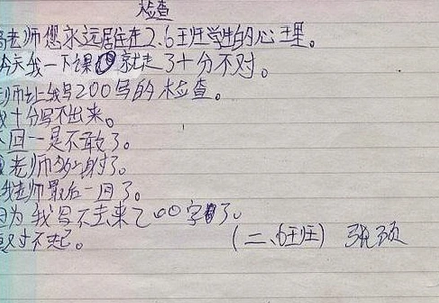 检查
老师您永远居住在2.6班学生的心里。
今天我一下课就走了十分不对。
老师让我写200写的检查。
我十分写不出来。
回一是不敢了。
老师
老师最后一回了。
因为我写不去来200字了。
对不起。
(二、6班)